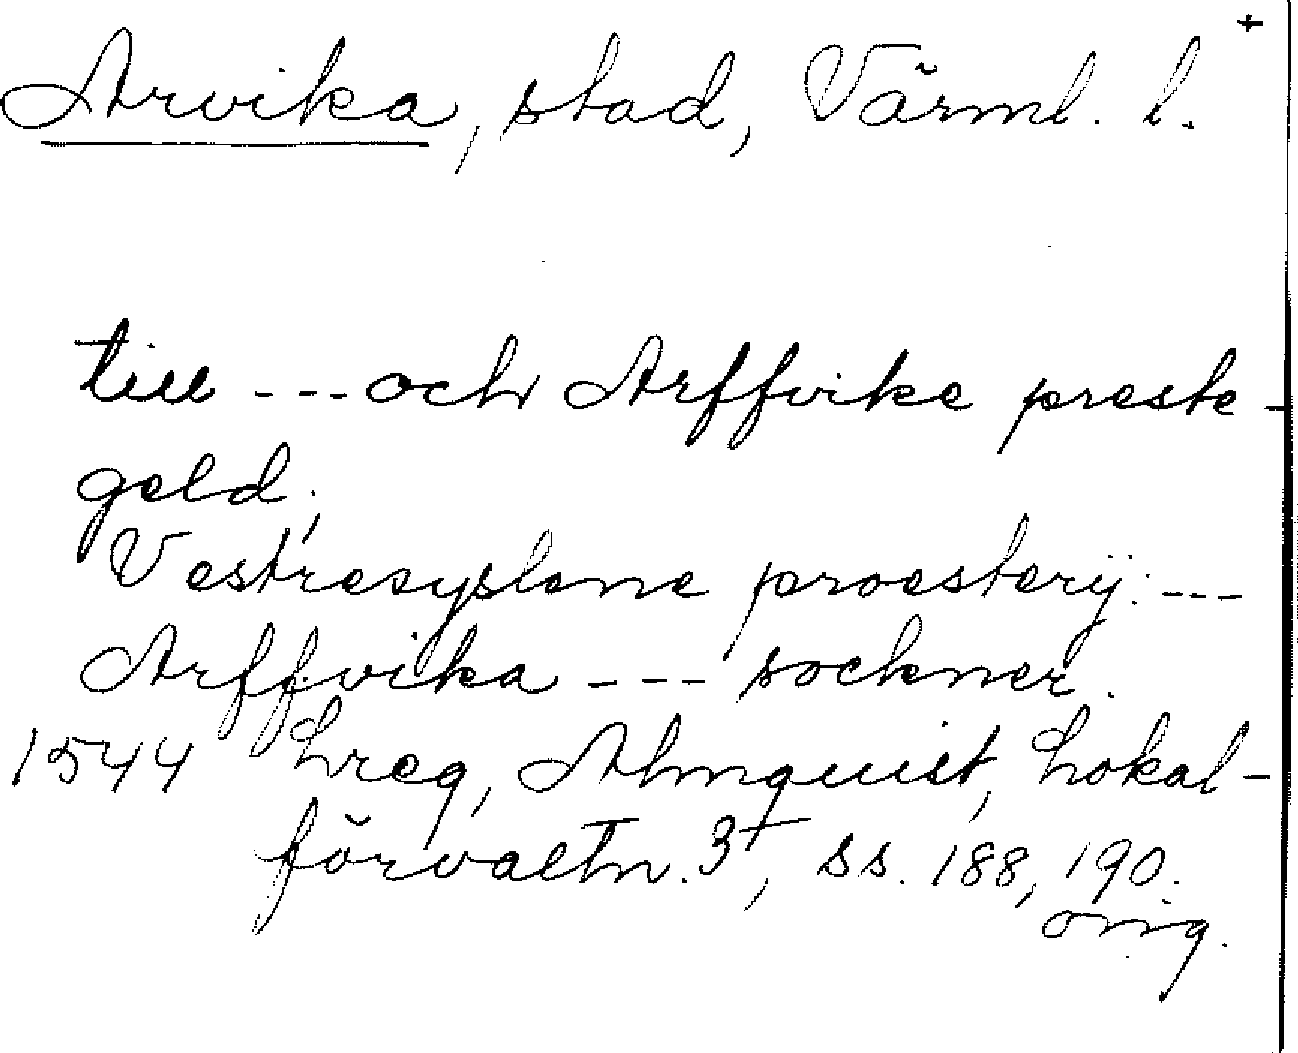 +
Arvika, stad, Värml. l.
till --- och Arffvike preste-
geld;
Vestresyslene proesterij: ---
Arffvika --- sockner.
1544 Lreg, Almquist, Lokal-
förvaltn. 3, ss. 188, 190.
orig.